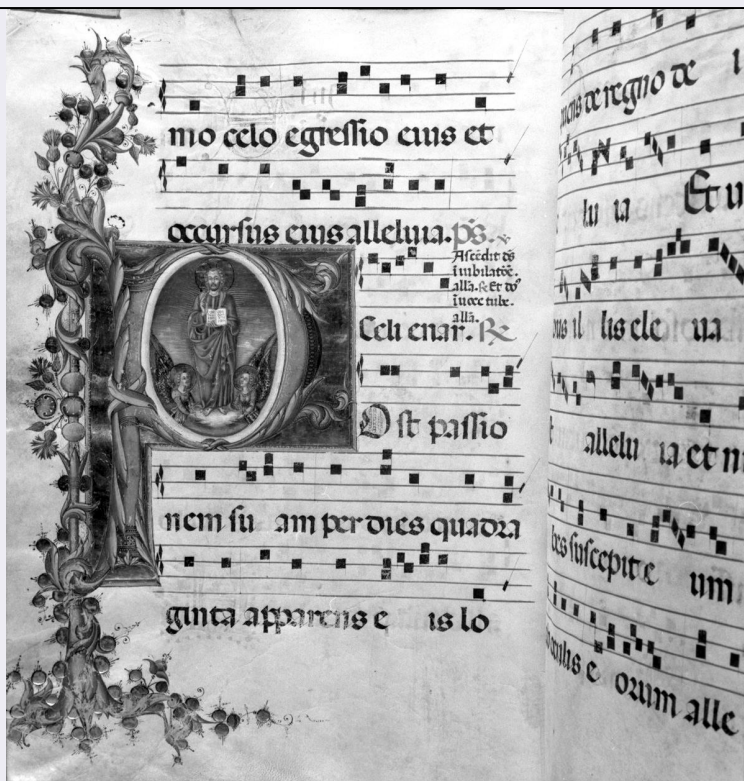 mo celo egressio eius et
occursus eius alleluia. ps.
Ascēdit ds̄
ī iubilatōe.
alla. ℟ Et dn̄s
ī uoce tube.
alla.
Celi enar. ℟
Ost passio
nem su am per dies quadra
ginta apparens e is lo
mens de regno de i
lu ia Et u
bus il lis ele ua
allelu ia et n
bes suscepit e um
oculis e orum alle